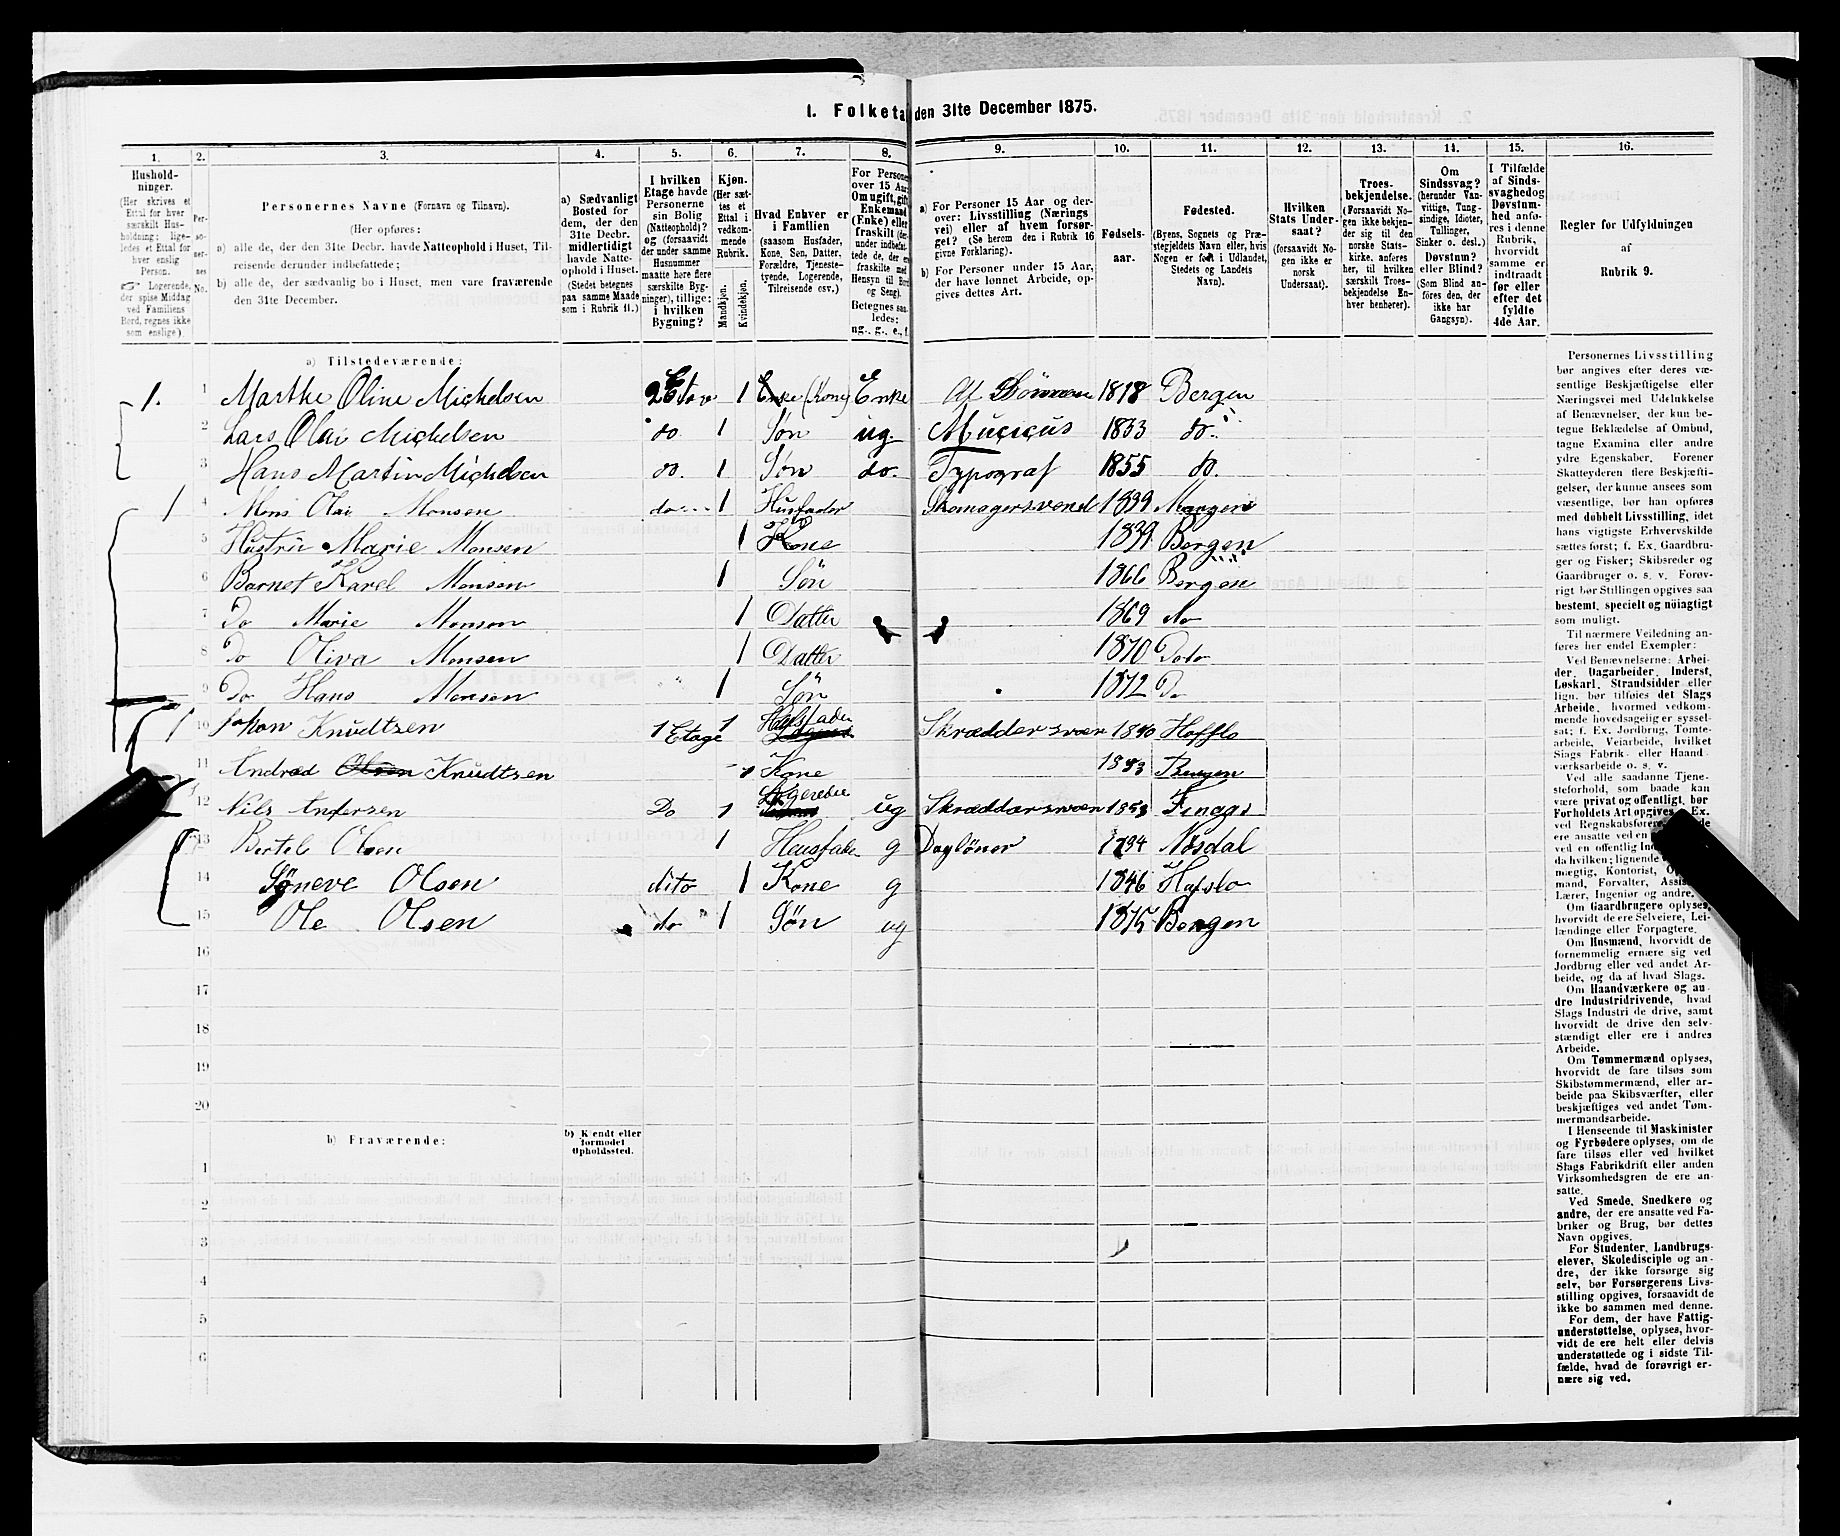 1. Folketal den 31te December 1875.
1. 2. 3. 4. 5. 6. 7. 8. 9. 10. 11. 12. 13. 14. 15. 16.
Hushold-
ninger.
(Her skrives et
Ettal for hver
særskilt Hus-
holdning; lige-
ledes et Ettal for
hver enslig
Person.
Logerende,
der spise Middag
ved Familiens
Bord, regnes ikke
som enslige.)
Per-
so-
ner-
nes
No.
Personernes Navne (Fornavn og Tilnavn).
(Her opføres:
a) alle de, der den 31te Decbr. havde Natteophold i Huset, Til-
reisende derunder indbefattede;
b) alle de, der sædvanlig bo i Huset, men vare fraværende
den 31te December.
a) Sædvanligt
Bosted for
dem, der den
31te Decbr.
midlertidigt
havde Natte-
ophold i Huset.
(Stedet betegnes
paa samme Maade
som i Rubrik 11.)
I hvilken
Etage havde
Personerne
sin Bolig
(Natteophold)?
og (forsaavidt
der under samme
Husnummer
maatte høre flere
særskilte Byg-
ninger), tillige:
i hvilken
Bygning?
Kjøn.
(Her sæt-
tes et
Ettal i
vedkom-
mende
Rubrik.
Mandkjøn.
Kvindekjøn.
Hvad Enhver er
i Familien
(saasom Husfader,
Kone, Søn, Datter,
Forældre, Tjeneste-
tyende, Logerende,
Tilreisende osv.)
For Persone
over 15 Aar
Om ugift, gift
Enkemand
(Enke) eller
fraskilt (der-
under indbefat-
tede de, der ere
fraskilte med
Hensyn til Bord
og Seng).
Betegnes saa-
ledes:
ug., g., e., f.
a) For Personer 15 Aar og der-
over: Livsstilling (Nærings
vei) eller af hvem forsør-
get? (Se herom den i Rubrik 16
givne Forklaring).
b) For Personer under 15 Aar,
der have lønnet Arbeide, op-
gives dettes Art.
Fødsels-
aar.
Fødested.
(Byens, Sognets og Præ-
stegjeldets Navn eller, hvis
Nogen er født i Udlandet,
Stedets og Landets
Navn).
Hvilken
Stats Under-
saat?
(forsaavidt No-
gen ikke er
norsk
Undersaat).
Troes-
bekjendelse.
(Forsaavidt No-
gen ikke bekjen-
der sig til den
norske Stats-
kirke, anføres
her, til hvilken
særskilt Troes-
bekjendelse En-
hver henhører).
Om
Sindssvag?
(herunder Van-
vittige, Tung-
sindige, Idioter,
Tullinger,
Sinker o. desl.)
Døvstum?
eller Blind?
(Som Blind an-
føres den, der
ikke har
Gangsyn).
I Tilfælde
af Sinds-
svaghed og
Døvstum-
hed anfø-
res i denne
Rubrik,
hvorvidt
samme er
indtraadt
før eller
efter det
fyldte
4de Aar.
Regler for Udfyldningen
af
Rubrik 9.
a) Tilstedeværende:
1. 1 Marthe Oline Michelsen 2 Etage 1 Enke (Kone) Enke Af 1818 Bergen
2 Lars Olai Michelsen do 1 Søn ug. Musicus 1853 do.
3 Hans Martin Michelsen do. 1 Søn do. Typograf 1855 do.
1 4 Mons Olai Monsen do 1 Husfader Skomagersvend 1839 Mangers
5 Hustru Marie Monsen 1 Kone 1839 Bergen
6 Barnet Karel Monsen 1 Søn 1866 Bergen
7 Do Marie Monsen 1 Datter 1869 do
8 Do Oliva Monsen 1 Datter 1870 Dodo
9 Do Hans Monsen 1 Søn 1872 Do
1 10 Johan Knudtsen 1 Etage 1 Husfader Skræddersven 1840 Hafslo
11 Andrea Olsen Knudtsen 1 Kone Bergen
12 Nils Andersen Do 1 Logerende ug Skræddersven 1853
13 Bertel Olsen 1 Husfader g Dagløner Næsdal
14 Søneve Olsen dito 1 Kone g 1846 Hafslo
15 Ole Olsen do 1 Søn ug 1875 Bergen
16
17
18
19
20
b) Fraværende:
b) Kjendt eller
formodet
Opholdssted.
1
2
3
4
5
6
Personernes Livsstilling
bør angives efter deres væ-
sentlige Beskjæftigelse eller
Næringsvei med Udelukkelse
af Benævnelser, der kun be-
tegne Beklædelse af Ombud,
tagne Examina eller andre
ydre Egenskaber. Forener
Skatteyderen flere Beskjæfti-
gelser, der kunne ansees som
væsentlige, bør han opføres
med dobbelt Livsstilling, idet
hans vigtigste Erhvervskilde
sættes først; f. Ex. Gaardbru-
ger og Fisker; Skibsreder og
Gaardbruger o. s. v. Forøv-
rigt bør Stillingen opgives saa
bestemt, specielt og nøiagtigt
som muligt.
Til nærmere Veiledning an-
føres her endel Exempler:
Ved Benævnelserne: Arbei-
der, Dagarbeider, Inderst,
Løskarl, Strandsidder eller
lign. bør tilføies det Slags
Arbeide, hvormed vedkom-
mende hovedsagelig er syssel-
sat; f. Ex. Jordbrug, Tomte-
arbeide, Veiarbeide, hvilket
Slags Fabrik- eller Haand-
værksarbeide o. s. v.
Ved alle saadanne Tjene-
steforhold, som baade kan
være privat og offentligt, bør
Forholdets Art opgives, f. Ex.
ved Regnskabsførere,
ere ansatte ved en
ved en offentlig
da hvilken; lignende
mægtig, Kontorist,
mand, Forvalter,
Lærer, Ingeniør og andre.
Om Gaardbrugere oplyses,
hvorvidt de ere Selveiere, Lei-
lændinge eller Forpagtere.
Om Husmænd, hvorvidt de
fornemmelig ernære sig ved
Jordbrug eller ved andet Ar-
beide, og da af hvad Slags.
Om Haandværkere og an-
dre Industridrivende, hvad
Slags Industri de drive, samt
hvorvidt de drive den selv-
stændigt eller ere i andres
Arbeide.
Om Tømmermænd oplyses,
hvorvidt de fare tilsøs som
Skibstømmermænd, eller ar-
beide paa Skibsværfter, eller
beskjæftiges ved andet Tøm-
mermandsarbeide.
I Henseende til Maskinister
og Fyrbødere oplyses, om de
fare tilsøs eller ved hvilket
Slags Fabrikdrift eller anden
Virksomhedsgren de ere an-
satte.
Ved Smede, Snedkere og
andre, der ere ansatte ved Fa-
briker og Brug, bør dettes
Navn opgives.
For Studenter, Landbrugs-
elever, Skoledisciple og an-
dre, der ikke forsørge sig
selv, bør Forsørgerens Livs-
stilling opgives, forsaavidt de
ikke bo sammen med denne.
For dem, der have Fattig-
understøttelse, oplyses, hvor-
vidt de ere helt eller delvis
understøttede og i sidste Til-
fælde, hvad de forøvrigt er-
nære sig ved.